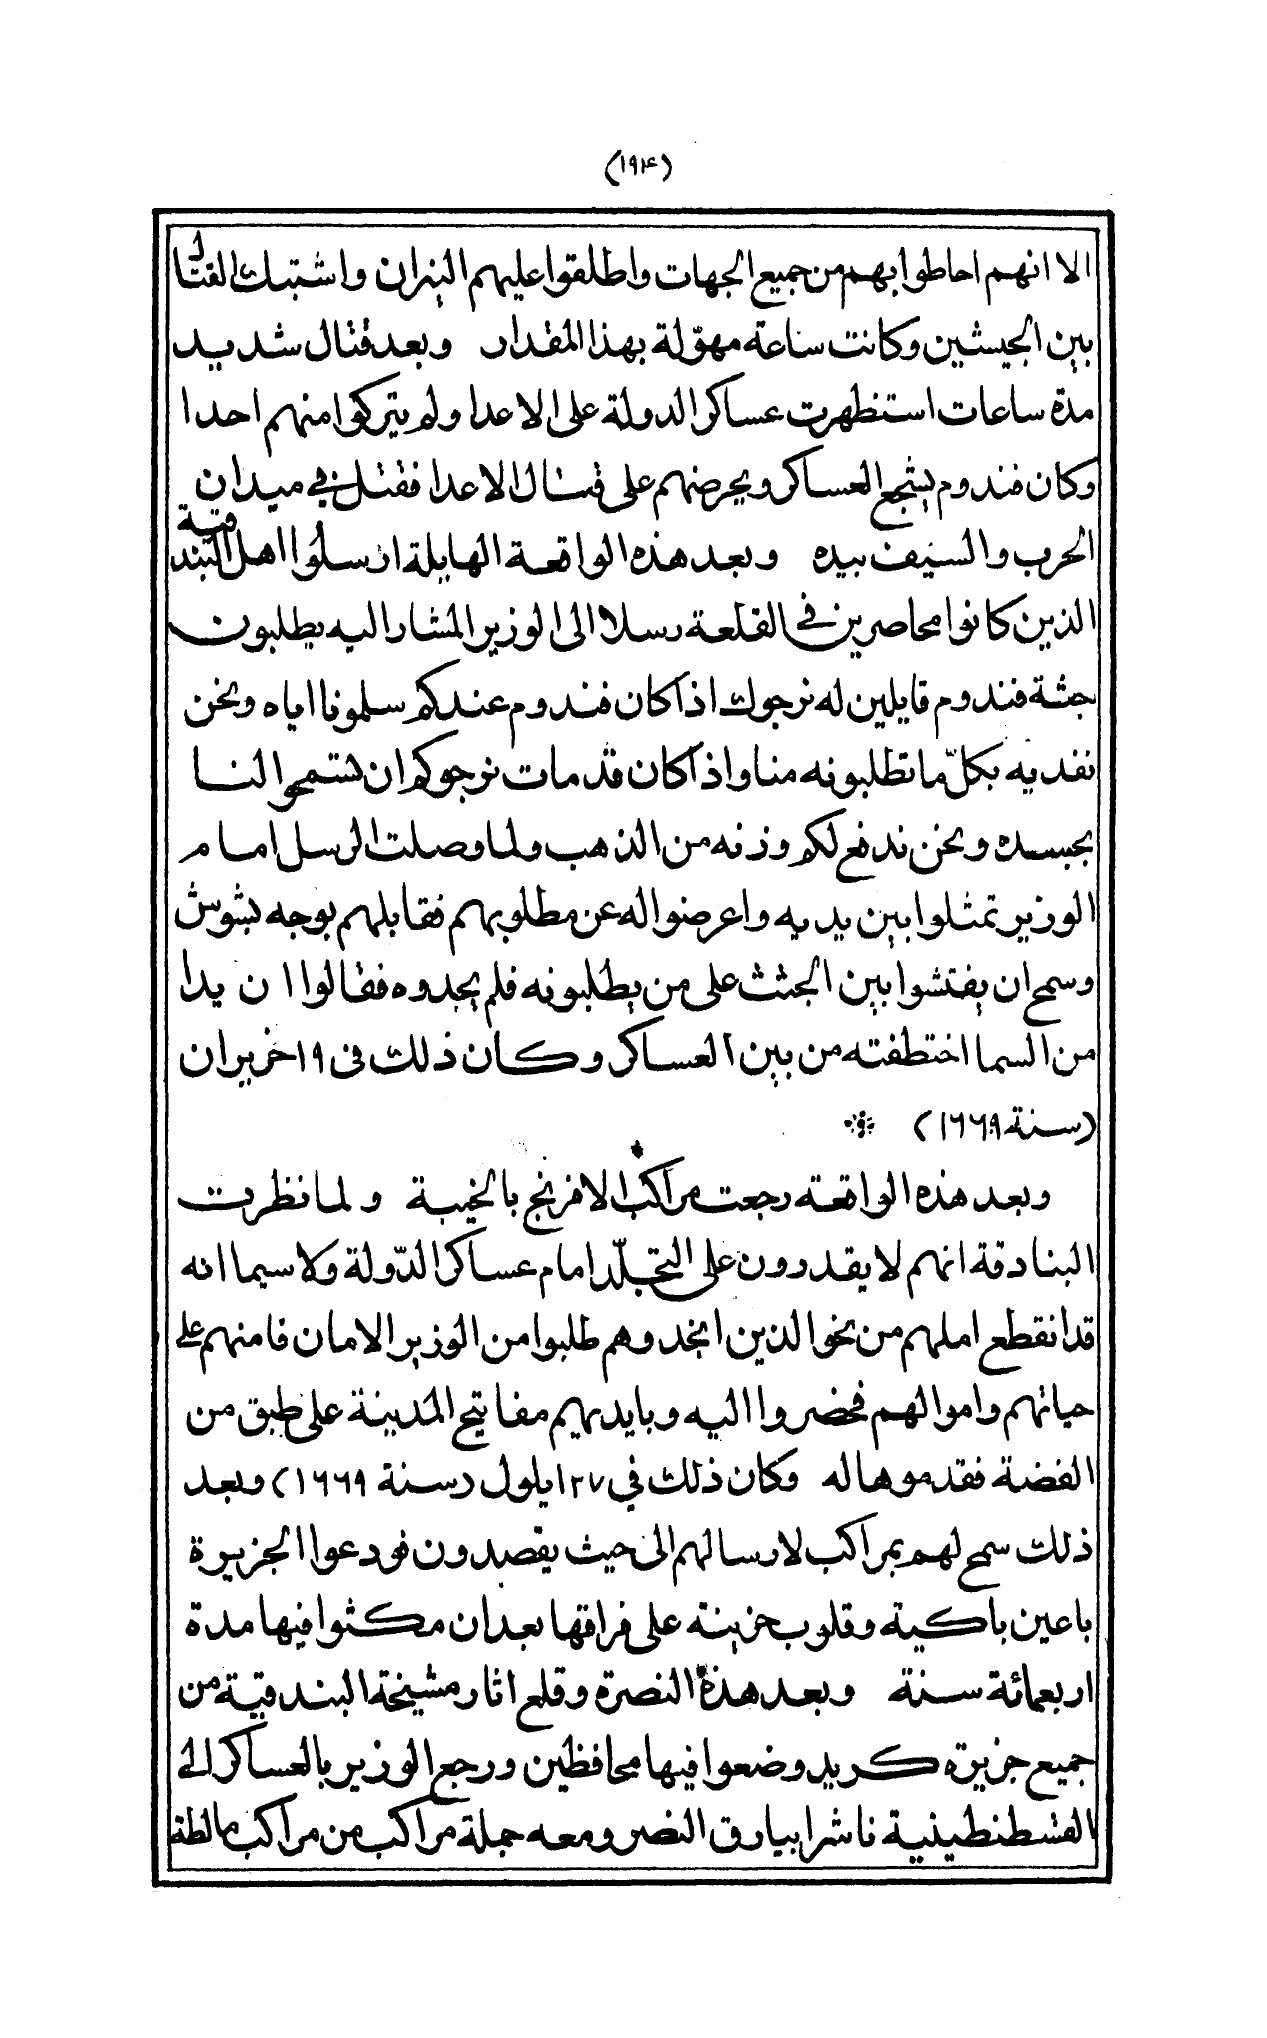 (١٩٤)
الا انهم احاطوا بهم من جميع الجهات واطلقوا عليهم النيران واشتبك القتال
بين الجيشين وكانت ساعة مهوّلة بهذا المقدار وبعد قتال شديد
مدة ساعات استظهرت عساكر الدولة على الاعدا ولم يتركوا منهم احدا
وكان فندوم يشجع العساكر ويحرضهم على قتال الاعدا فقتل في ميدان
الحرب والسيف بيده وبعد هذه الواقعة الهايلة ارسلوا اهل البندقية
الذين كانوا محاصرين في القلعة رسلا الى الوزير المشار اليه يطلبون
جثة فندوم قايلين له نرجوك اذا كان فندوم عندكم سلمونا اياه ونحن
نفديه بكلّ ما تطلبونه منا واذا كان قد مات نرجوكم ان تستمحوا لنا
بجسده ونحن ندفع لكم وزنه من الذهب ولما وصلت الرسل امام
الوزير تمثلوا بين يديه واعرضوا له عن مطلوبهم فقابلهم بوجه بشوش
وسمح ان يفتشوا بين الجثث على من يطلبونه فلم يجدوه فقالوا ان يدا
من السما اختطفته من بين العساكر وكان ذلك فى ١٩ حزيران
(سنة ١٦٦٩)
وبعد هذه الواقعة رجعت مراكب الافرنج بالخيبة ولما نظرت
البنادقة انهم لا يقدرون على التجلّد امام عساكر الدّولة ولا سيما انه
قد انقطع املهم من نحو الذين انجدوهم طلبوا من الوزير الامان فامنهم على
حياتهم واموالهم فحضروا اليه وبايديهم مفاتيح المدينة على طبق من
الفضة فقدموها له وكان ذلك في ٢٧ ايلول (سنة ١٦٦٩) وبعد
ذلك سمح لهم بمراكب لارسالهم الى حيث يقصدون فودعوا الجزيرة
باعين باكية وقلوب حزينة على فراقها بعد ان مكثوا فيها مدة
اربعمائة سنة وبعد هذه النصرة وقلع اثار مشيخة البندقية من
جميع جزيرة كريد وضعوا فيها محافظين ورجع الوزير بالعساكر الى
القسطنطينية ناشرا بيارق النصر ومعه جملة مراكب من مراكب مالطة